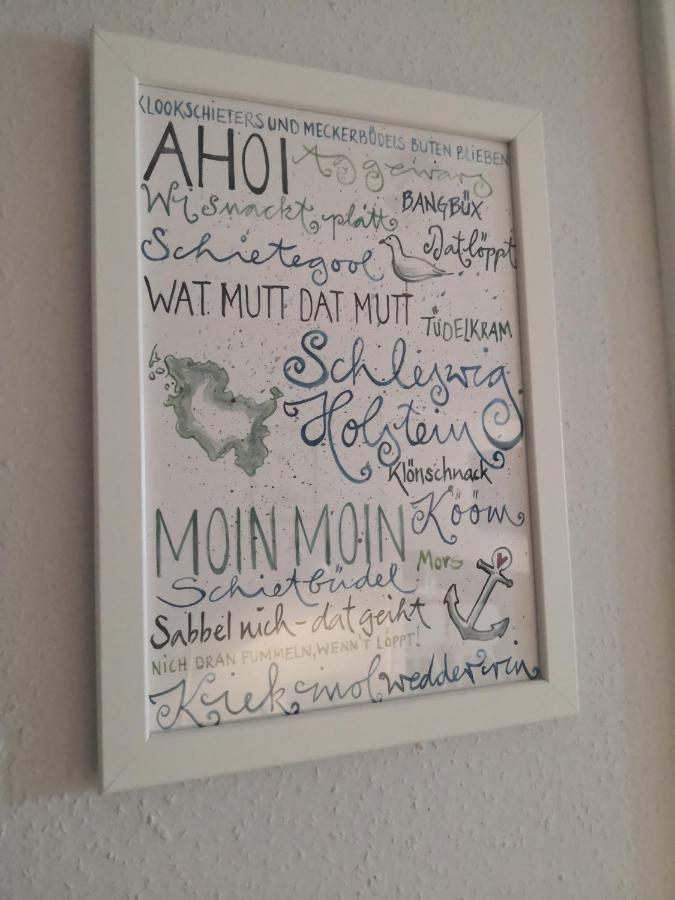 KLOOKSCHIETERS UND MECKERBÜDELS BUTEN BLIEBEN
AHOI Aggewars
Wi snackt platt BANGBÜX
Schietegool Dat löppt
WAT MUTT DAT MUTT
TÜDELKRAM
Schleswig
Holstein
Klönschnack
MOIN MOIN Kööm
Mors
Schietbüdel
Sabbel nich - dat geiht
NICH DRAN FUMMELN, WENN'T LÖPPT!
Kiek mol wedder in